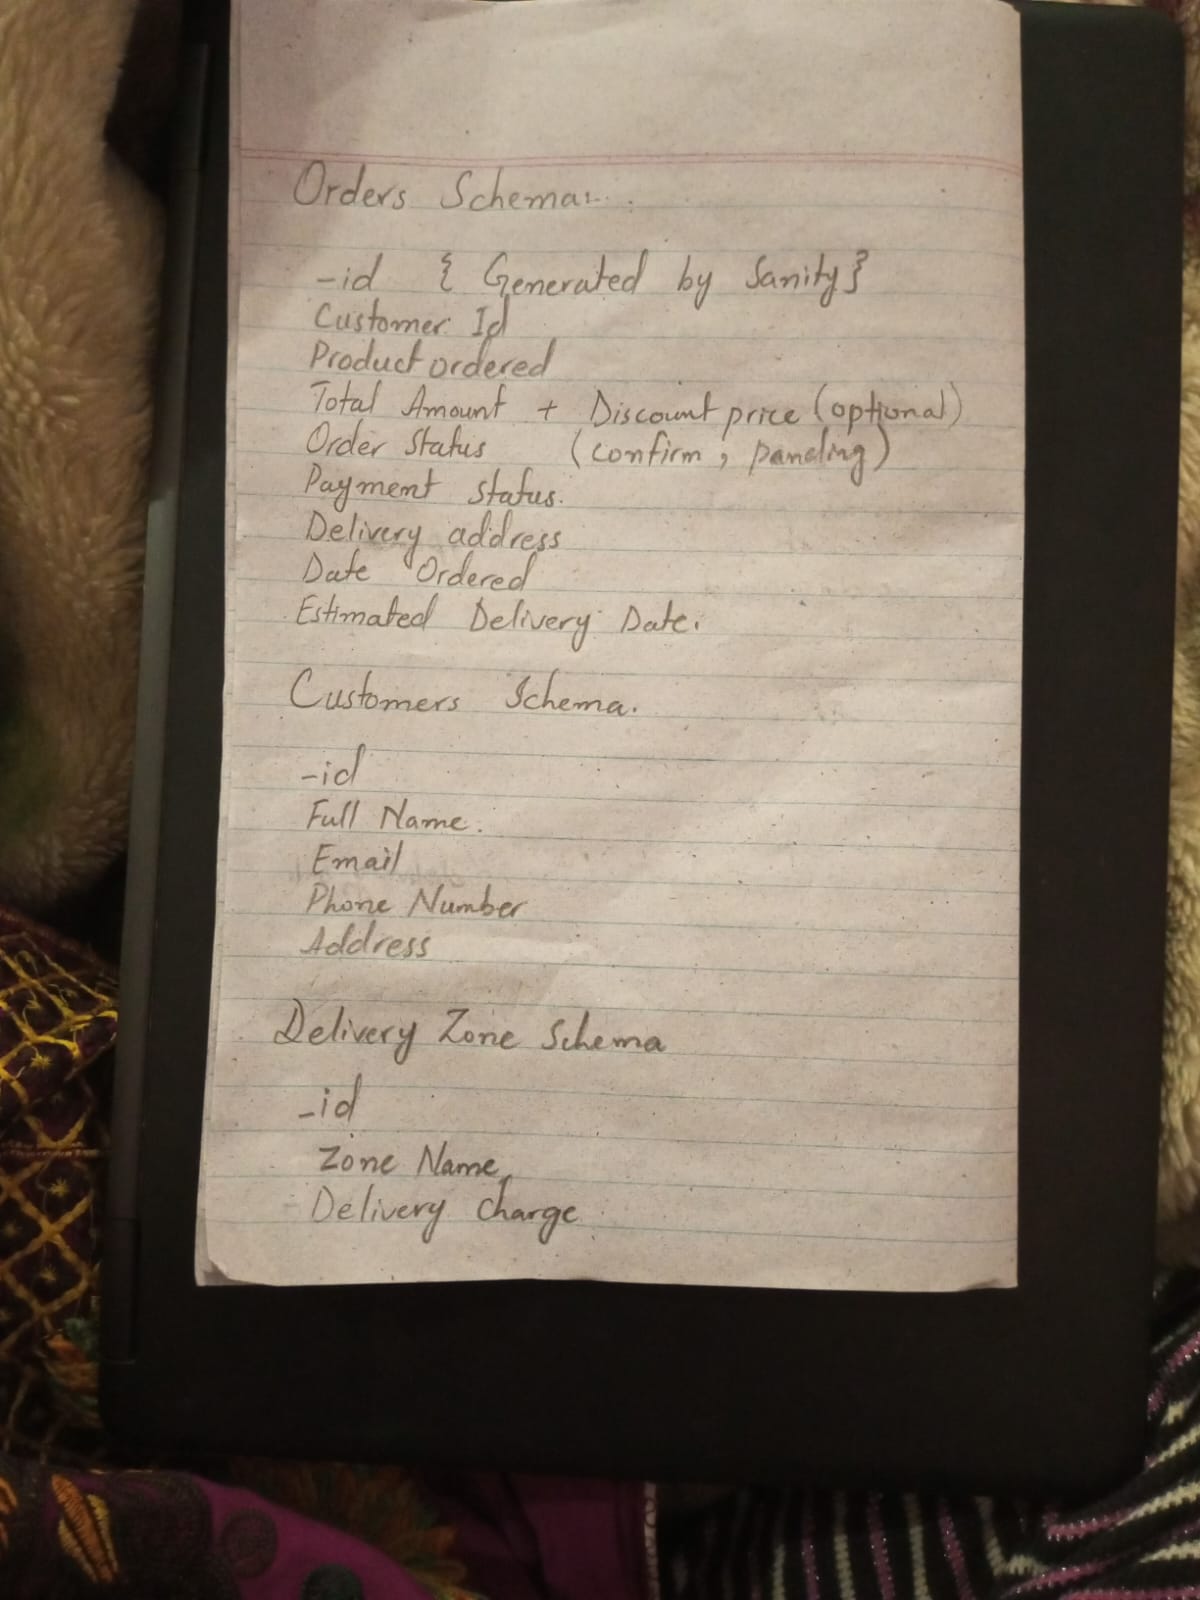 Orders Schema:-
_id { Generated by Sanity}
Customer Id
Product ordered
Total Amount + Discount price (optional)
Order Status (confirm, panding)
Payment status.
Delivery address
Date Ordered
Estimated Delivery Date.
Customers Schema.
_id
Full Name.
Email
Phone Number
Address
Delivery Zone Schema
_id
Zone Name
Delivery charge